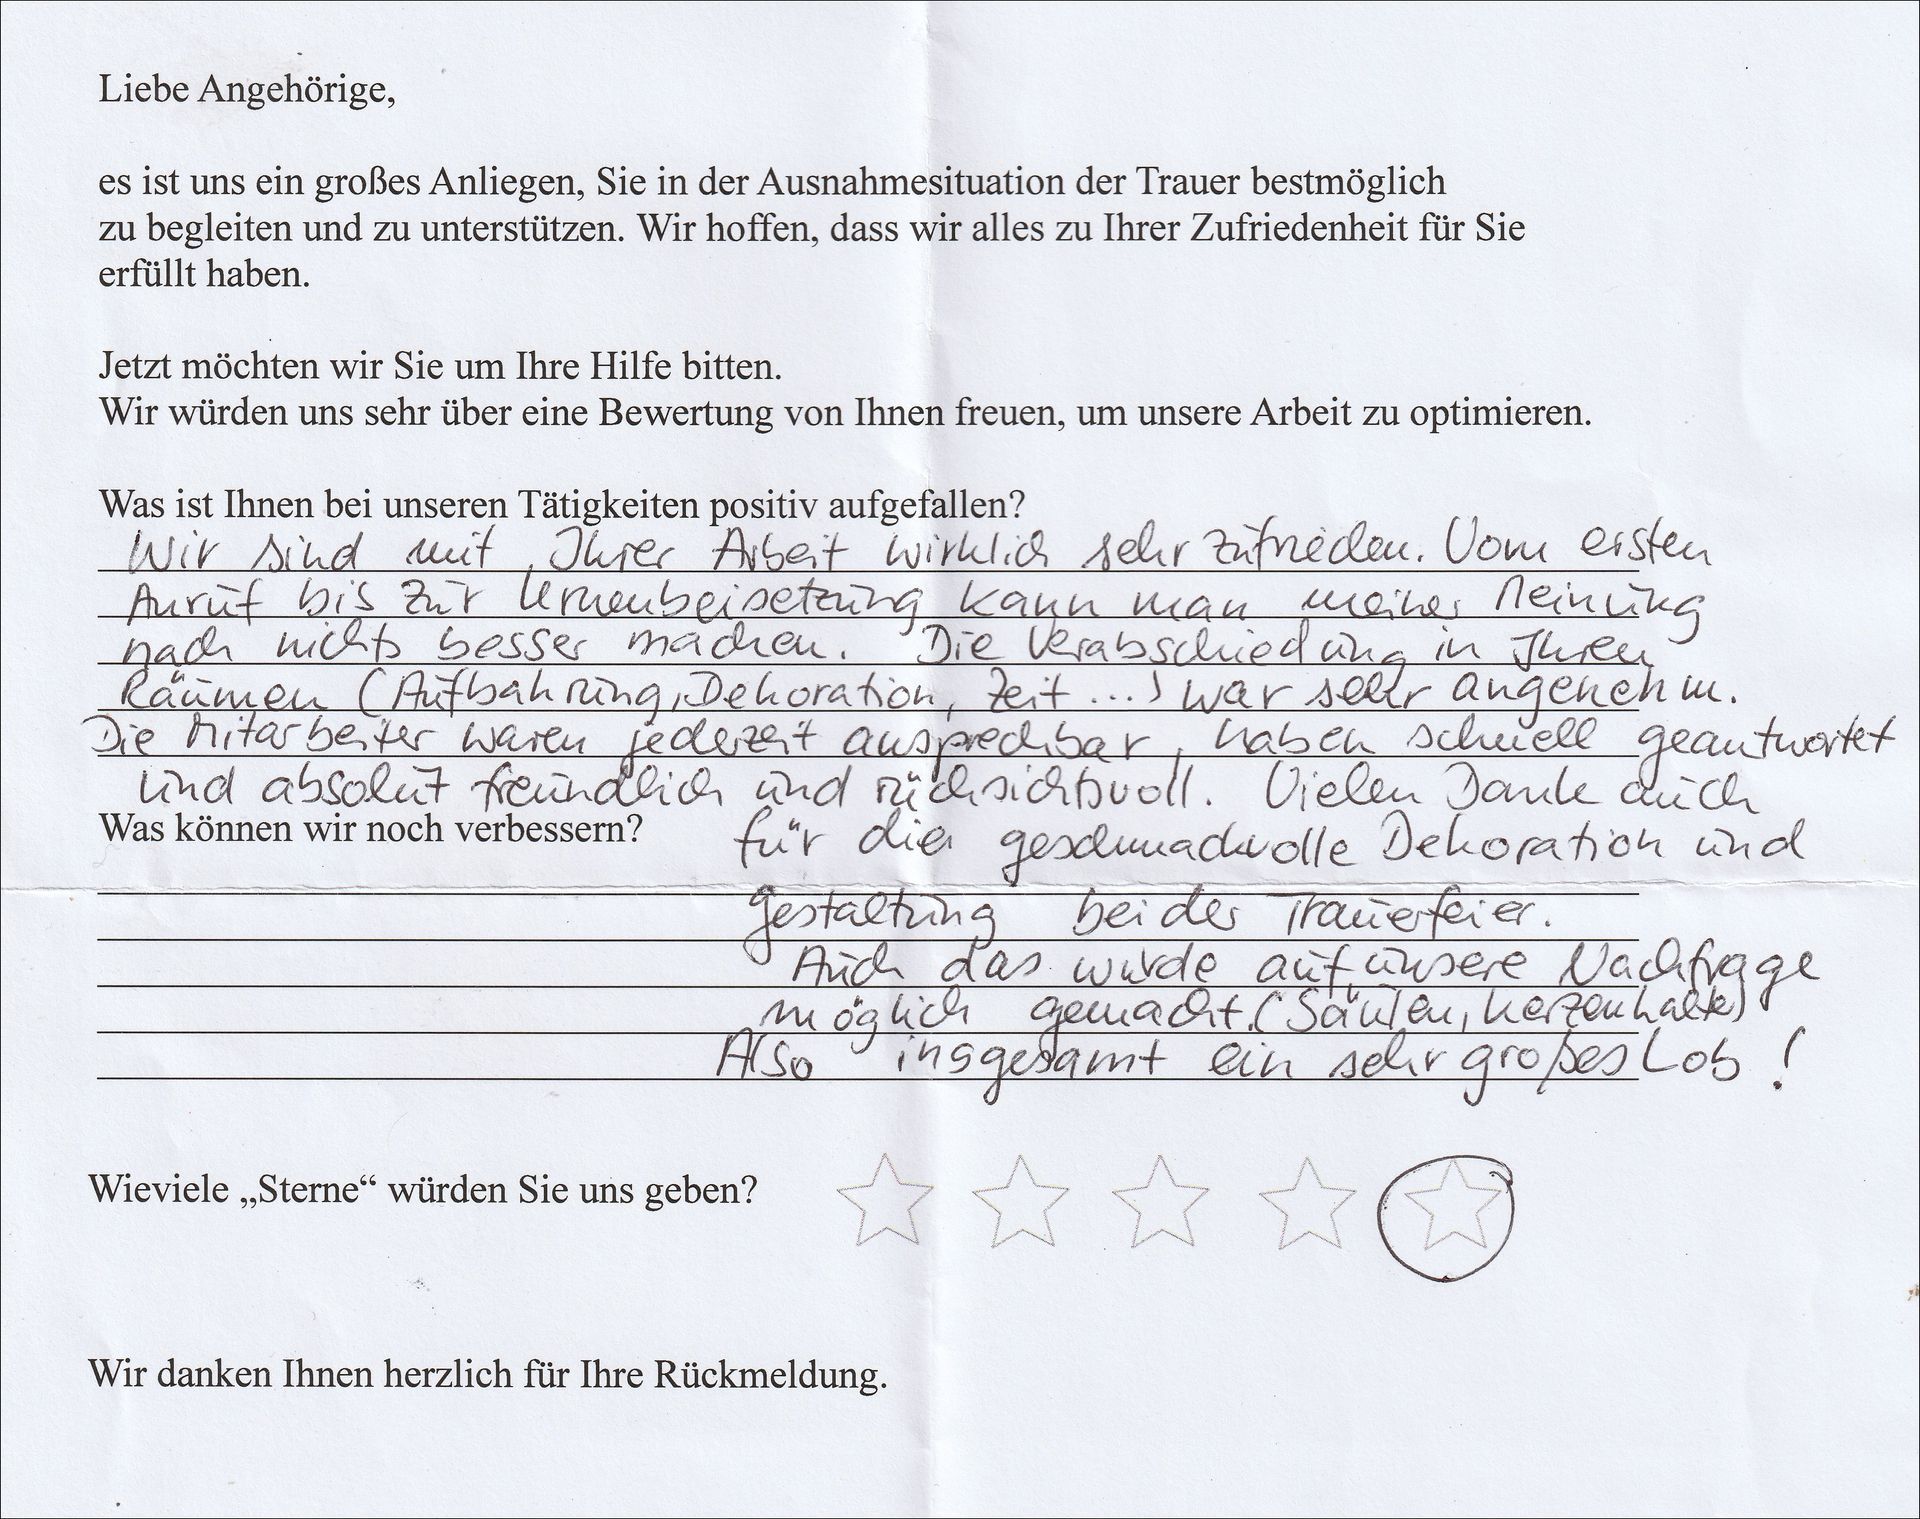 Liebe Angehörige,
es ist uns ein großes Anliegen, Sie in der Ausnahmesituation der Trauer bestmöglich
zu begleiten und zu unterstützen. Wir hoffen, dass wir alles zu Ihrer Zufriedenheit für Sie
erfüllt haben.
Jetzt möchten wir Sie um Ihre Hilfe bitten.
Wir würden uns sehr über eine Bewertung von Ihnen freuen, um unsere Arbeit zu optimieren.
Was ist Ihnen bei unseren Tätigkeiten positiv aufgefallen?
Wir sind mit Ihrer Arbeit wirklich sehr zufrieden. Vom ersten
Anruf bis zur Urnenbeisetzung kann man meiner Meinung
nach nichts besser machen. Die Verabschiedung in Ihren
Räumen (Aufbahrung, Dekoration, Zeit ...) war sehr angenehm.
Die Mitarbeiter waren jederzeit ansprechbar, haben schnell geantwortet
und absolut freundlich und rücksichtsvoll. Vielen Dank auch
Was können wir noch verbessern?
für die geschmackvolle Dekoration und
Gestaltung bei der Trauerfeier.
Auch das wurde auf unsere Nachfrage
möglich gemacht. (Säulen, Kerzenhalter)
Also insgesamt ein sehr großes Lob!
Wieviele „Sterne“ würden Sie uns geben?
Wir danken Ihnen herzlich für Ihre Rückmeldung.